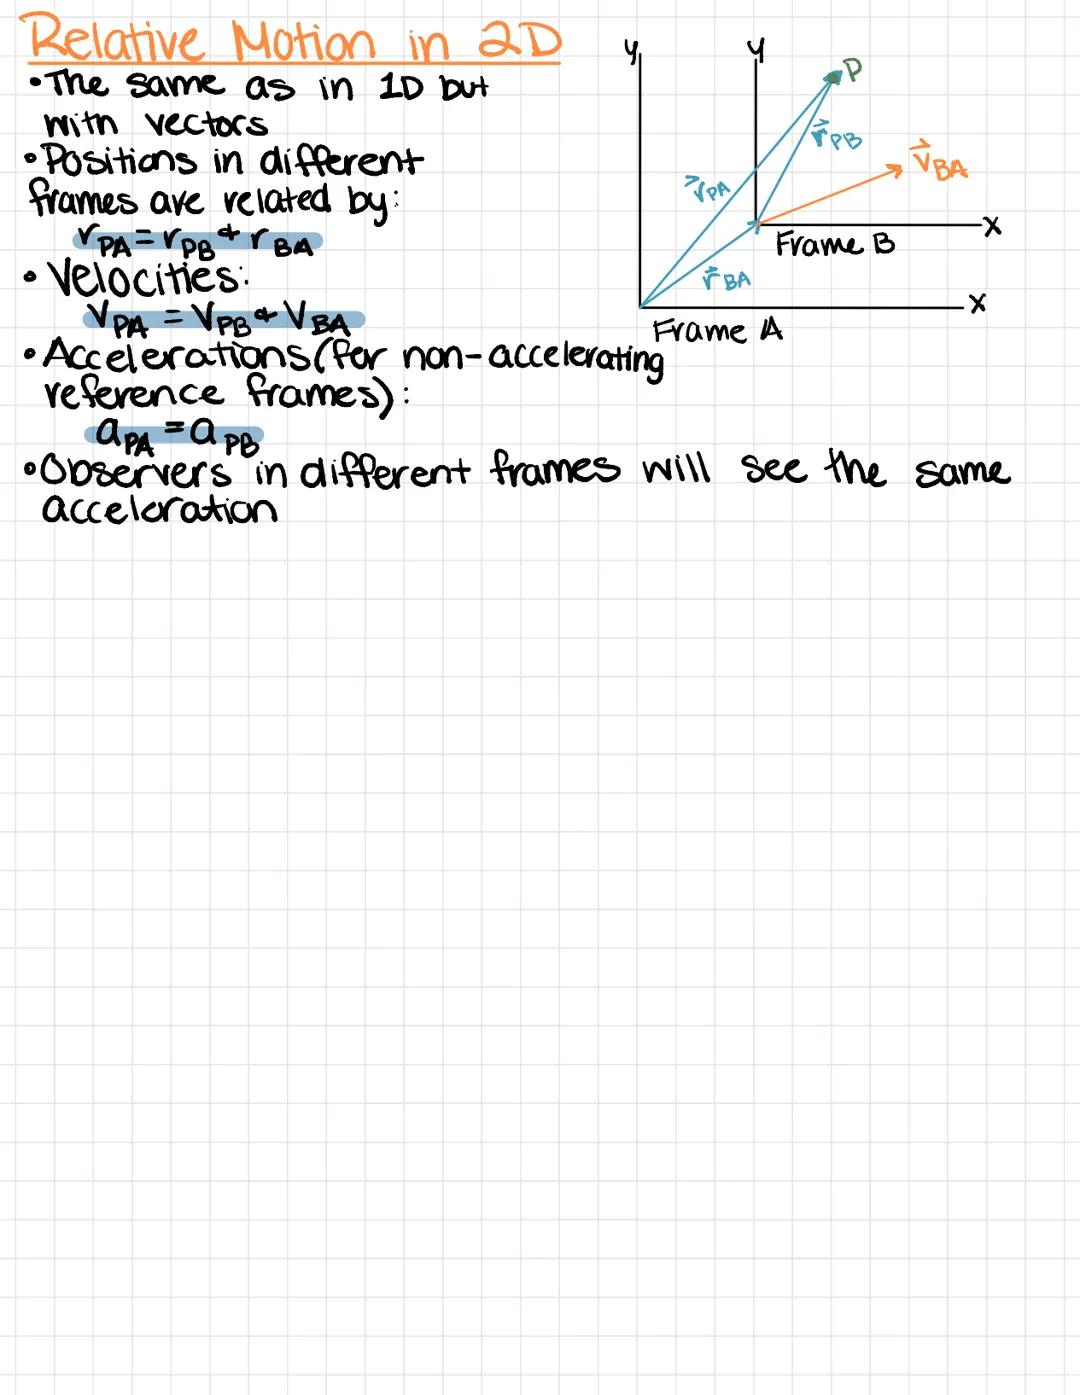 Relative Motion in 2D
•The same as in 1D but
with vectors
•Positions in different
frames are related by:
r PA = r PB + r BA
•Velocities:
V PA = V PB + V BA
•Accelerations (for non-accelerating
reference frames):
a PA = a PB
•Observers in different frames will see the same
acceleration
y
y
P
r⃗ PB
v⃗ BA
r⃗ PA
x
Frame B
r⃗ BA
x
Frame A